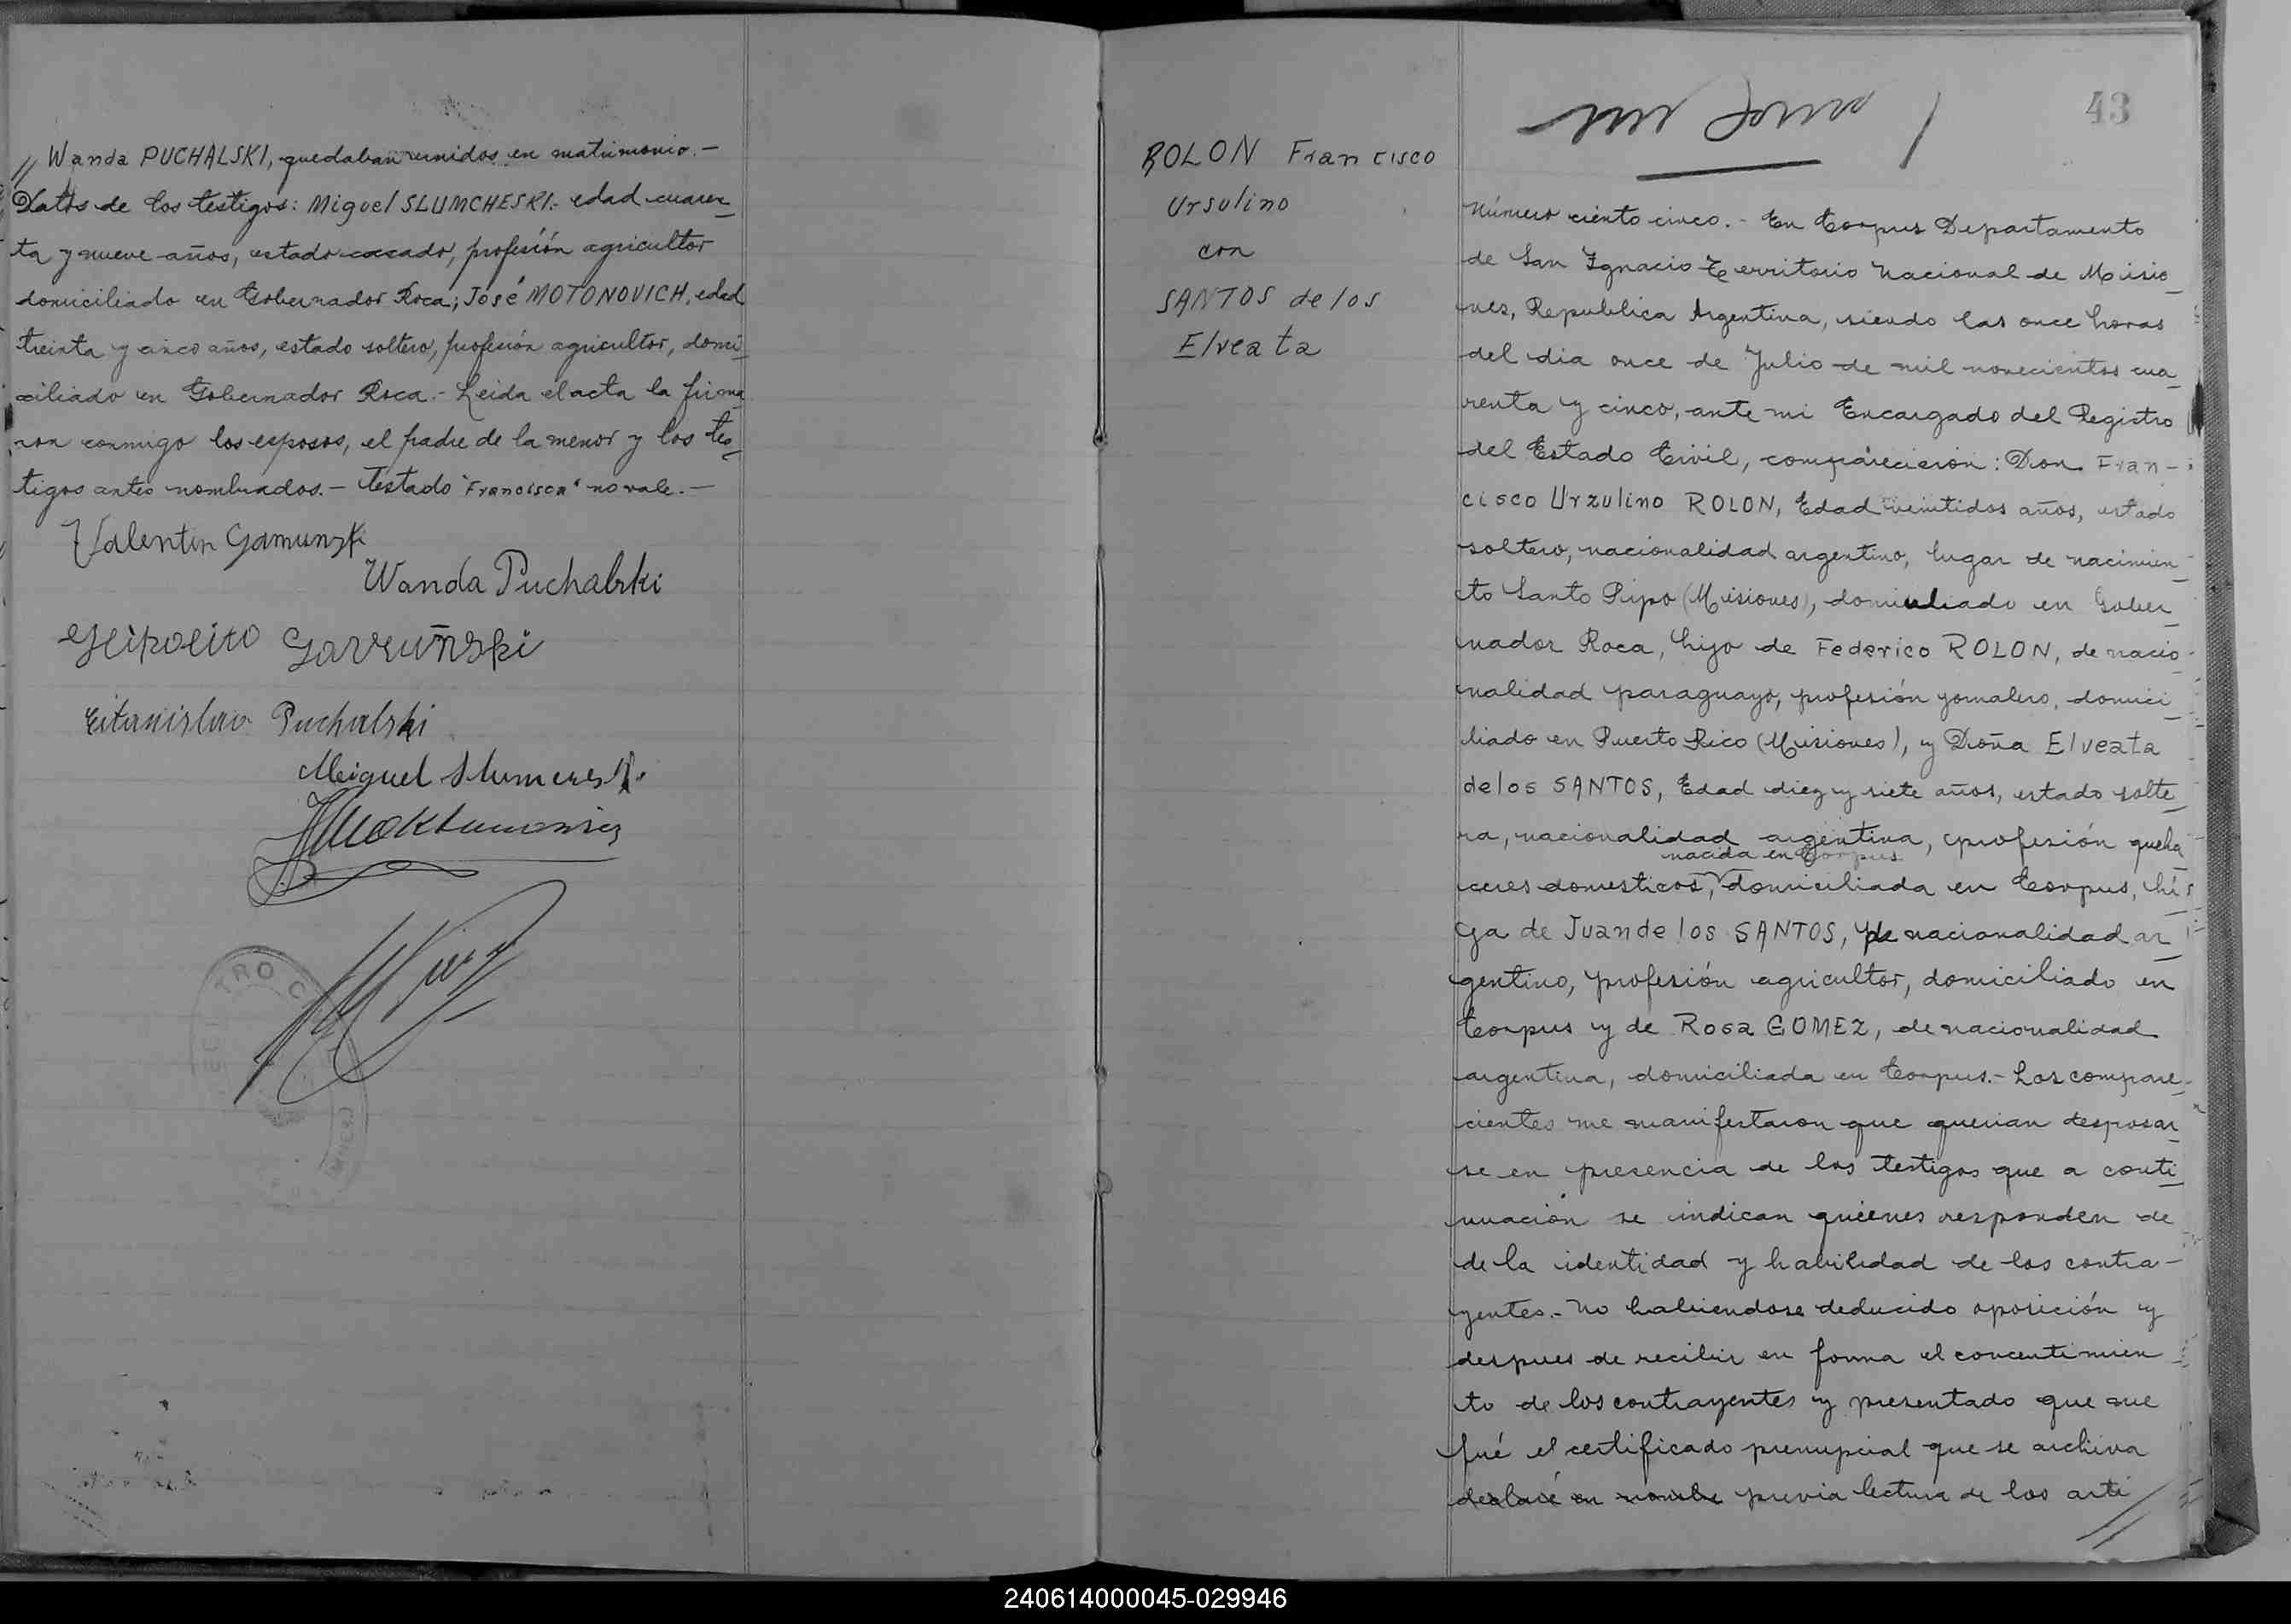 // Wanda PUCHALSKI, quedaban unidos en matrimonio.-
Datos de los testigos: Miguel SLUMCHESKI.- edad cuaren
ta y nueve años, estado casado, profesión agricultor
domiciliado en Gobernador Roca; José MOTONOVICH, edad
treinta y cinco años, estado soltero, profesión agricultor, domi
ciliado en Gobernador Roca.- Leida el acta la firma
ron conmigo los esposos, el padre de la menor y los tes
tigos antes nombrados.- Testado "Francisca" no vale.-
Valentin
Wanda Puchalski
Puchalski
Miguel
43
ROLON Francisco
Ursulino
con
SANTOS de los
Elveata
Número ciento cinco.- En Corpus Departamento
de San Ignacio Territorio Nacional de Misio
nes, Republica Argentina, siendo las once horas
del dia once de Julio de mil novecientos cua
renta y cinco, ante mi Encargado del Registro
del Estado Civil, comparecieron: Don Fran-
cisco Urzulino ROLON, Edad veintidos años, estado
soltero, nacionalidad argentino, lugar de nacimien
to Santo Pipo (Misiones), domiciliado en Gober
nador Roca, hijo de Federico ROLON, de nacio
nalidad paraguayo, profesión jornalero, domici
liado en Puerto Rico (Misiones), y Doña Elveata
de los SANTOS, Edad diez y siete años, estado solte
ra, nacionalidad argentina, profesión queha
nacida en Corpus
ceres domesticos, domiciliada en Corpus, hi
ja de Juan de los SANTOS, de nacionalidad ar
gentino, profesión agricultor, domiciliado en
Corpus y de Rosa GOMEZ, de nacionalidad
argentina, domiciliada en Corpus.- Los compare
cientes me manifestaron que querian desposar
se en presencia de los testigos que a conti
nuación se indican quienes responden de
de la identidad y habilidad de los contra-
yentes.- No habiendose deducido oposición y
despues de recibir en forma el concentimien
to de los contrayentes y presentado que me
fué el certificado prenupcial que se archiva
declaré en nombre previa lectura de los arti
//
240614000045-029946